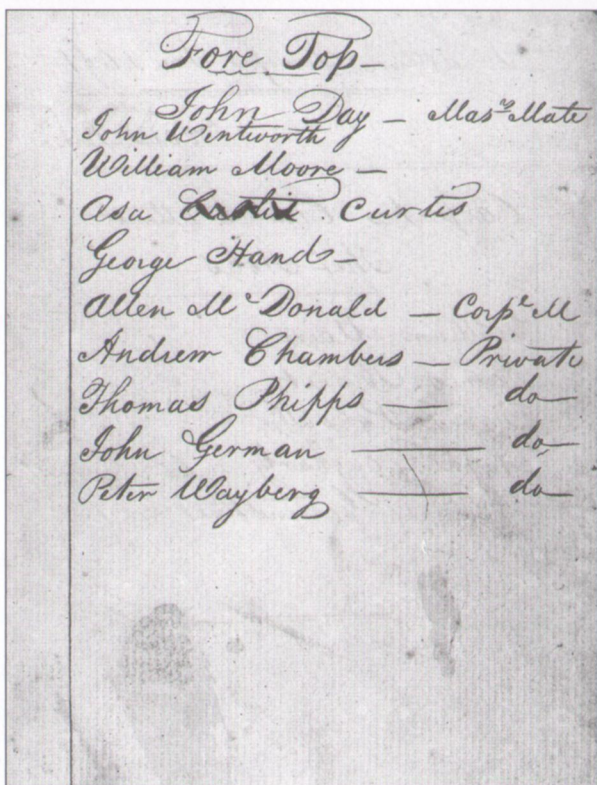 Fore Top—
John Day — Mas.rs Mate
John Wentworth
William Moore —
Asa Curtis
George Hand—
Allen McDonald — Corpl M
Andrew Chambers — Private
Thomas Phipps — do
John German — do
Peter Wayberg — do